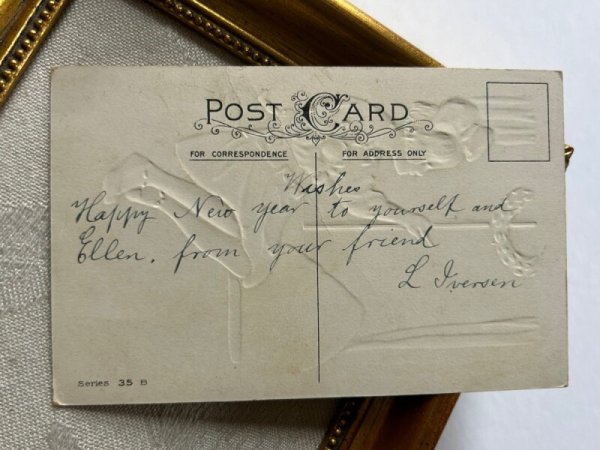 POST CARD
FOR CORRESPONDENCE
FOR ADDRESS ONLY
Wishes
Happy New year to yourself and
Ellen. from your friend
L Iversen
Series 35 B